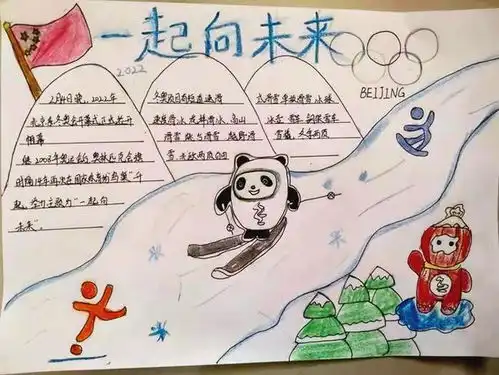 一起向未来
2022
BEIJING
2月4日晚，2022年
北京冬奥会开幕式正式拉开
帷幕
继2008年奥运会后奥林匹克会旗
时隔14年再次在国家体育场"鸟巢"升
起，
一起向
未来"。
冬奥项目有短道速滑
速度滑冰 花样滑冰、高山
滑雪 越野滑
雪
自由式滑雪 单板滑雪 冰球
冰壶 雪车 钢架雪车
雪橇、冬季两项